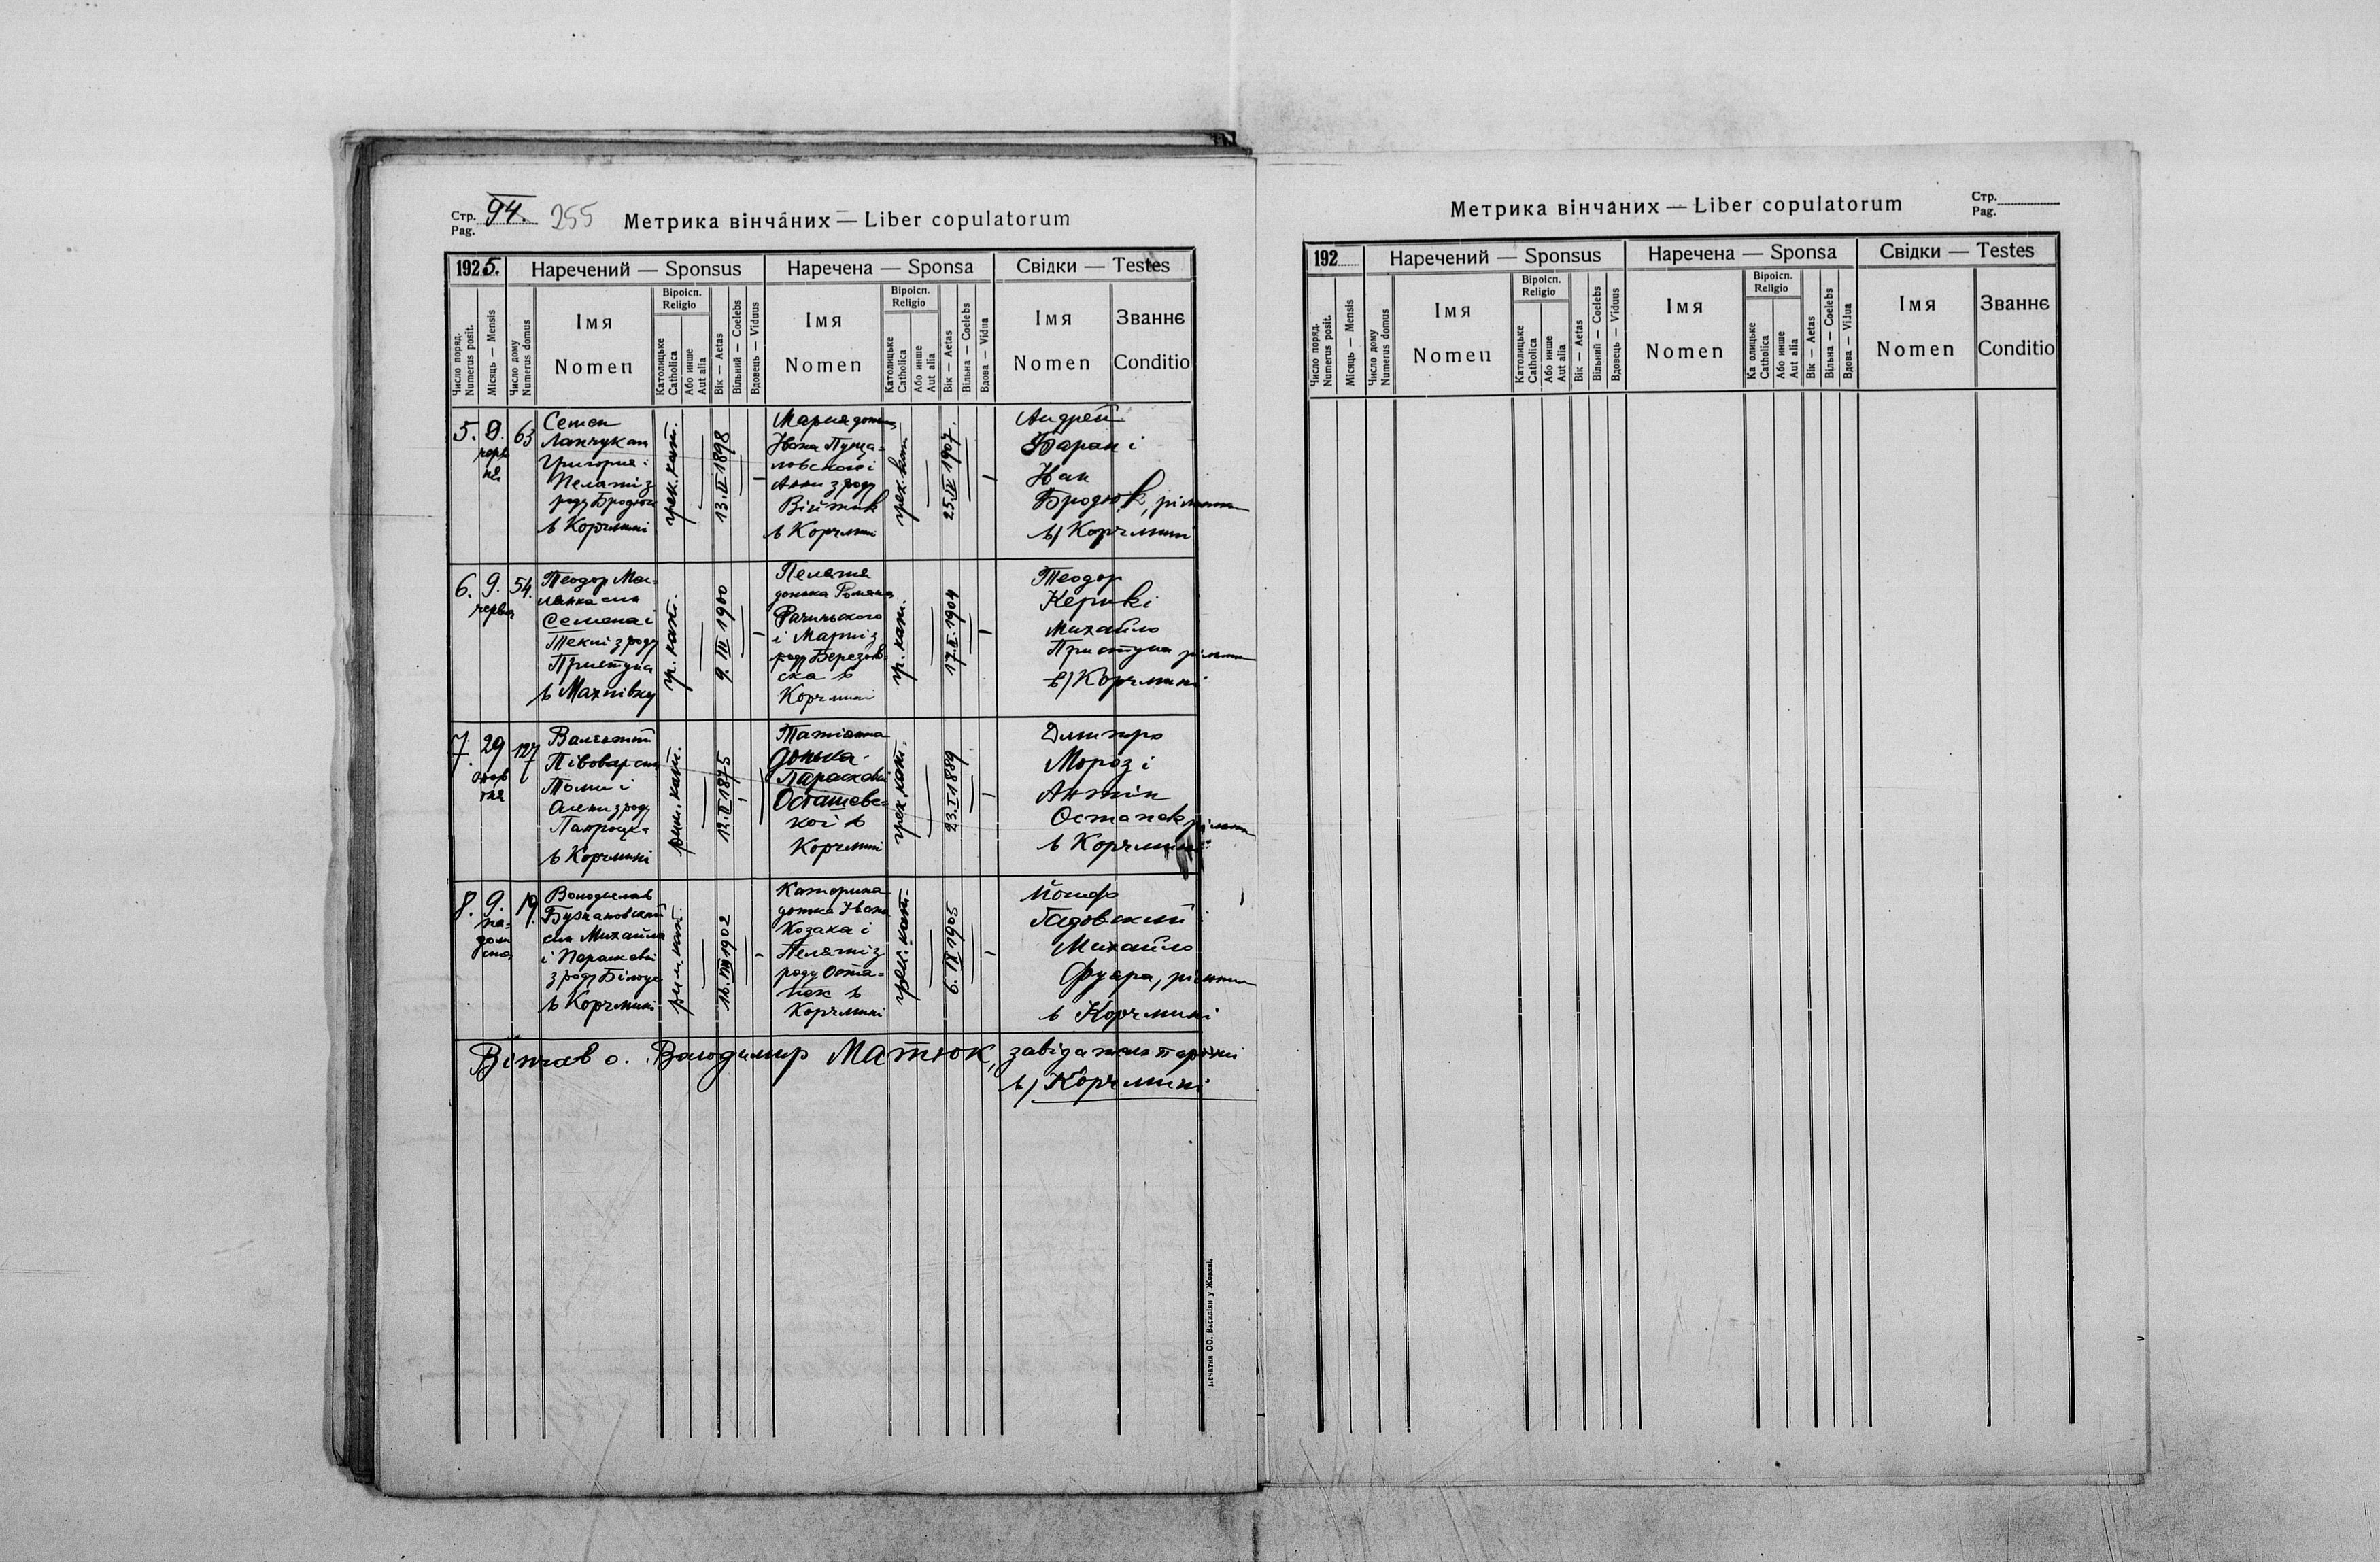 Стр. 94. 255 Метрика вінчаних — Liber copulatorum
Pag.
1925. Наречений — Sponsus Наречена — Sponsa Свідки — Testes
Число поряд.
Numerus posit.
Місяць — Mensis
Число дому
Numerus domus
Імя
Nomen
Віроісп.
Religio
Католицьке
Catholica
Або инше
Aut alia
Вік — Aetas
Вільний — Coelebs
Вдовець — Viduus
Імя
Nomen
Віроісп.
Religio
Католицьке
Catholica
Або инше
Aut alia
Вік — Aetas
Вільна — Coelebs
Вдова — Vidua
Імя
Nomen
Званнє
Conditio
5. 9. черв
ня
63
Семен
Григория і
Пелагії з
роду Бродюк
в Корчмині
грек. кат.
13. II 1898
Мария донька
Івана
Анни з роду
Війтик
в Корчмині
грек. кат.
25. IV 1907.
Андрей
Баран і
Іван
Бродюк, рільники
в) Корчмині
6. 9. червня 54.
Теодор Ма-
ланка син
Семена і
Теклі з роду
Приступа
в Махнівку
гр. кат.
9. III 1900
Пелагія
донька Романа
Рачинського
і Марії з
роду Березов-
ска в
Корчмині
гр. кат.
17. II. 1904
Теодор
Керик і
Михайло
Приступа рільники
в) Корчмині
7. 29 127
Валентий
Півовар син
Томи і
Олени з роду
в Корчмині
рим. кат.
12. II 1875
Татіянна
донька
Параскеви
Осташевс-
кої в
Корчмині
грек. кат.
23. I 1889
Дмитро
Мороз і
Антін
Остапок рільники
в Корчмині
8. 9. ли-
сто
19.
Володислав
син Михайла
і Параскеви
з роду
в Корчмині
рим. кат.
16. VIII 1902
Катерина
донька Івана
Козака і
Пелагії з
роду Оста-
пок в
Корчмині
грек. кат.
6. IX 1905
Йосиф
Гадовский і
Михайло
Фуара, рільники
в Корчмині
Вінчав о. Володимир Матюк, завідатель парохії
в) Корчмині
Печатня ОО. Василіян у Жовкві.
Метрика вінчаних — Liber copulatorum Стр.
Pag.
192 Наречений — Sponsus Наречена — Sponsa Свідки — Testes
Число поряд.
Numerus posit.
Місяць — Mensis
Число дому
Numerus domus
Імя
Nomen
Віроісп.
Religio
Католицьке
Catholica
Або инше
Aut alia
Вік — Aetas
Вільний — Coelebs
Вдовець — Viduus
Імя
Nomen
Віроісп.
Religio
Ка олицьке
Catholica
Або инше
Aut alia
Вік — Aetas
Вільна — Coelebs
Вдова — Vidua
Імя
Nomen
Званнє
Conditio